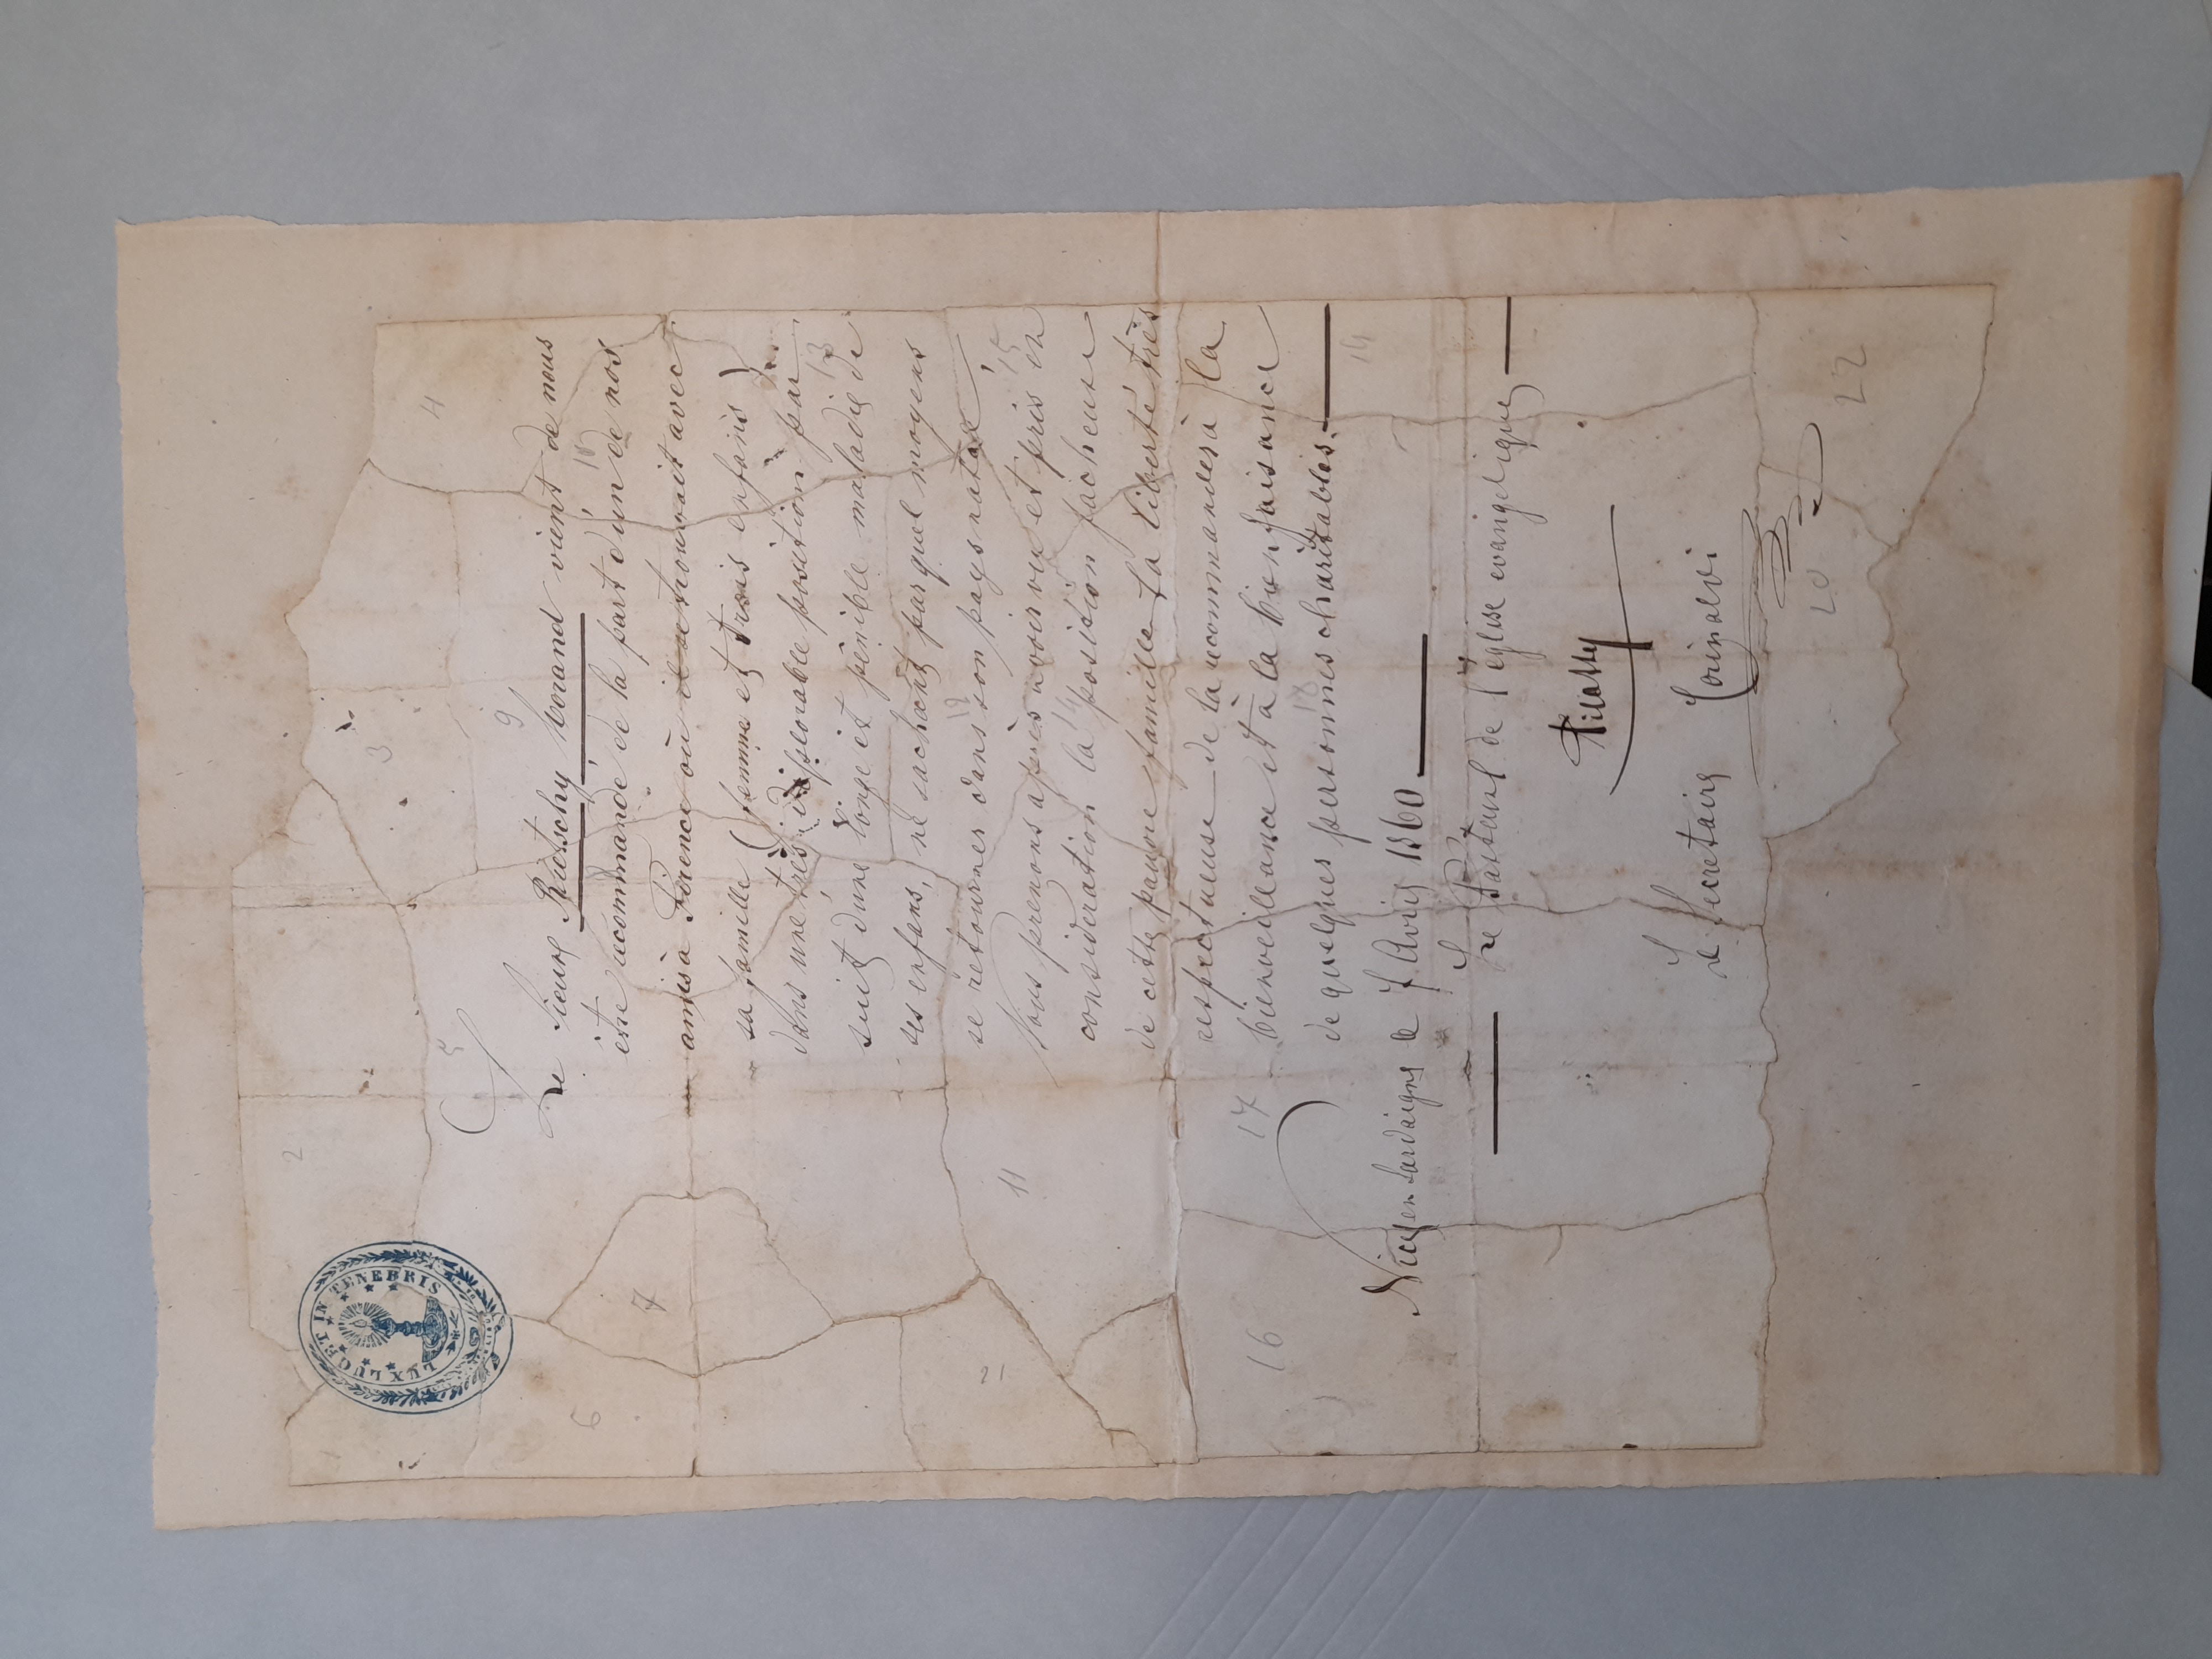 LUX LUCET IN TENEBRIS
Le Sieur Rüetschy Morand vient de nous
être recommandé de la part d'un de nos
amis à Florence où il se trouvait avec
sa famille (femme et trois enfans)
dans une très déplorable position par
suite d'une longe et pénible maladie de
ses enfans, ne sachant par quel moyens
se retourner dans son pays natal
Nous prenons après avoir vu et pris en
consideration la position facheuse
de cette pauvre famille la liberté très
respectueuse de la recommander à la
bienveillance et à la bienfaisance
de quelques personnes charitables.
Nice en Sardaigne le 7 Avril 1860
Le Pasteur de l'église evangelique
Pilatte
Le Secretaire
2
3
4
5
6
7
9
10
11
12
13
14
15
16
17
18
19
20
21
22